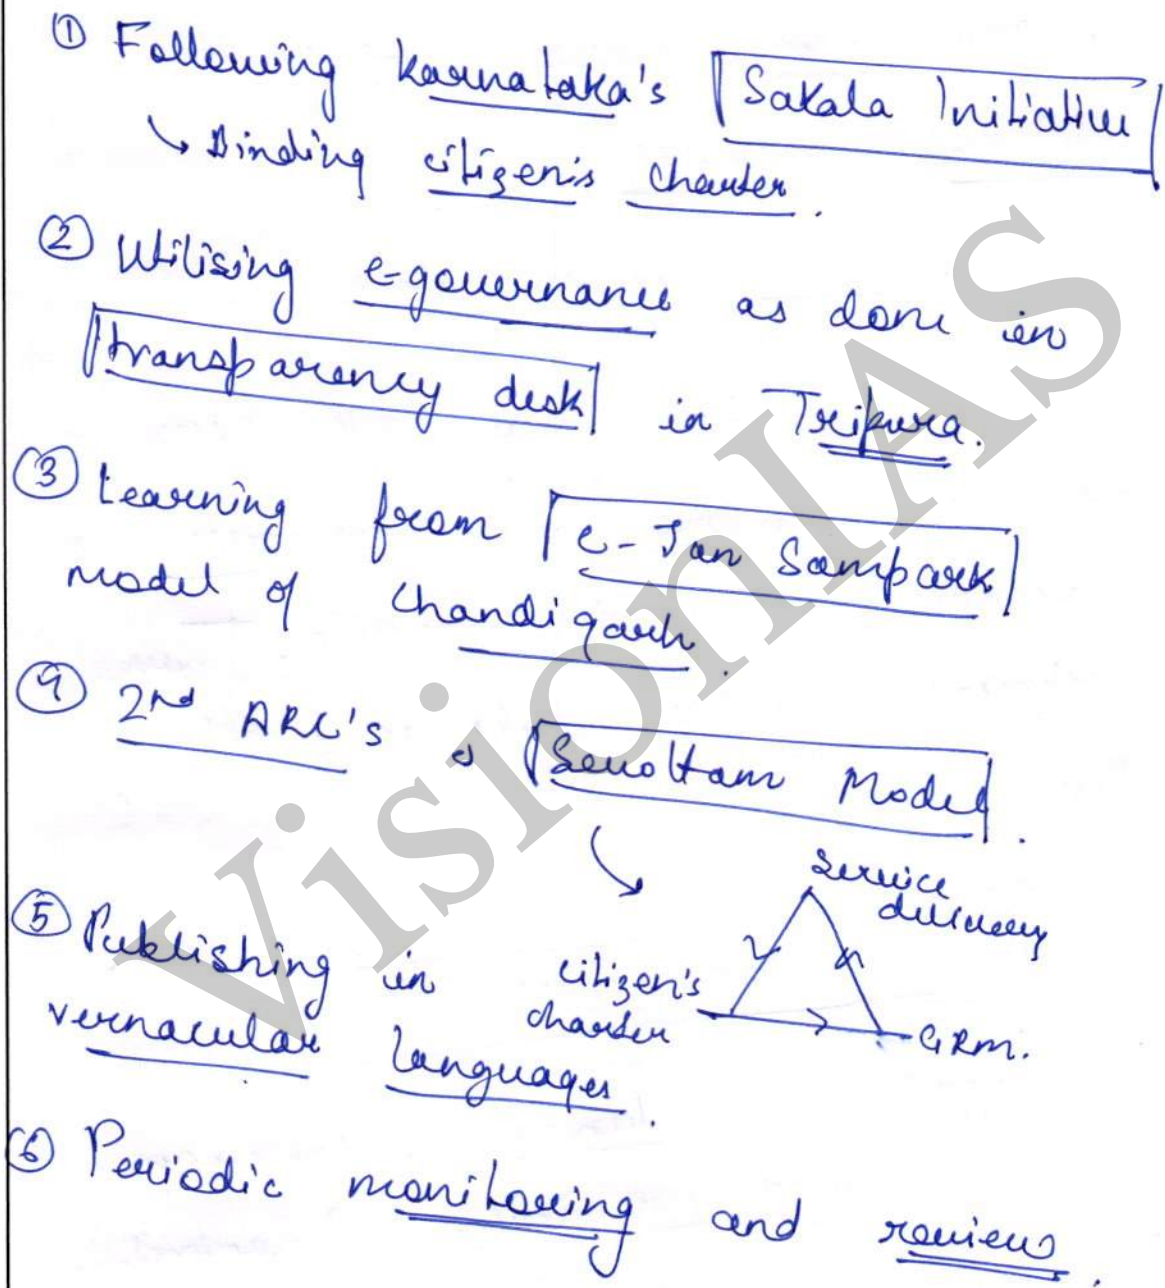 ① Following Karnataka's Sakala Initiative
↳ Binding citizen's charter.
② Utilising e-governance as done in
transparency desk in Tripura.
③ Learning from e-Jan Sampark
model of Chandigarh.
④ 2nd ARC's Sevottam Model.
Service
delivery
citizen's
charter
GRM.
⑤ Publishing in
vernacular languages.
⑥ Periodic monitoring and review.
VisionIAS